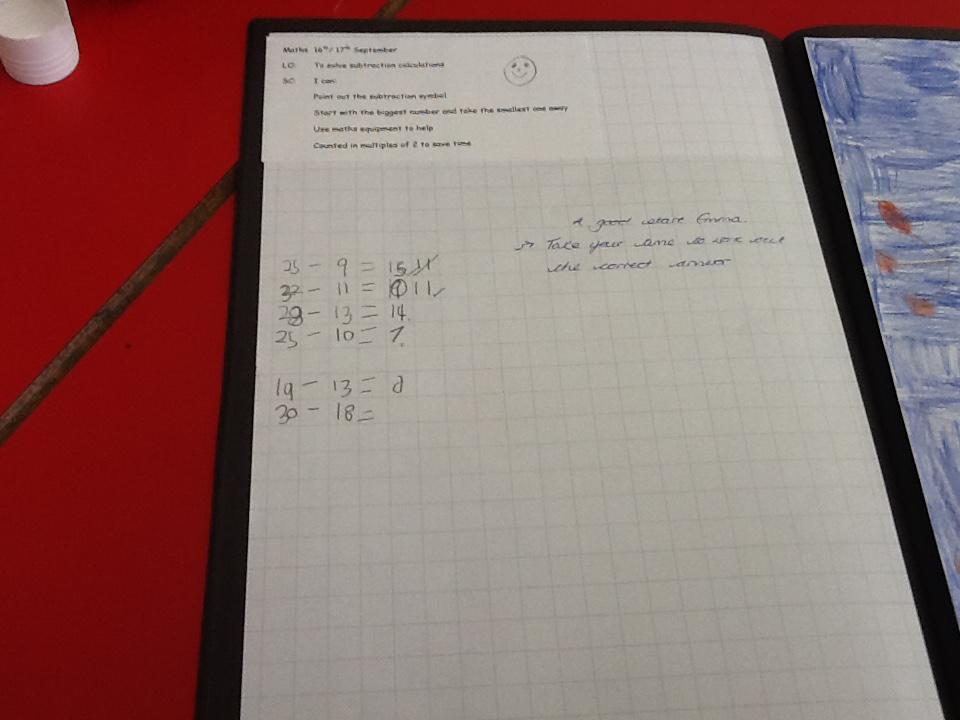 Maths 16th/17th September
LO: To solve subtraction calculations
SC: I can:
Point out the subtraction symbol
Start with the biggest number and take the smallest one away
Use maths equipment to help
Counted in multiples of 2 to save time
A good start Emma.
→ Take your time to work out
the correct answer
25 - 9 = 15
32 - 11 = 11
28 - 13 = 14
25 - 10 = 7
19 - 13 = 8
30 - 18 =